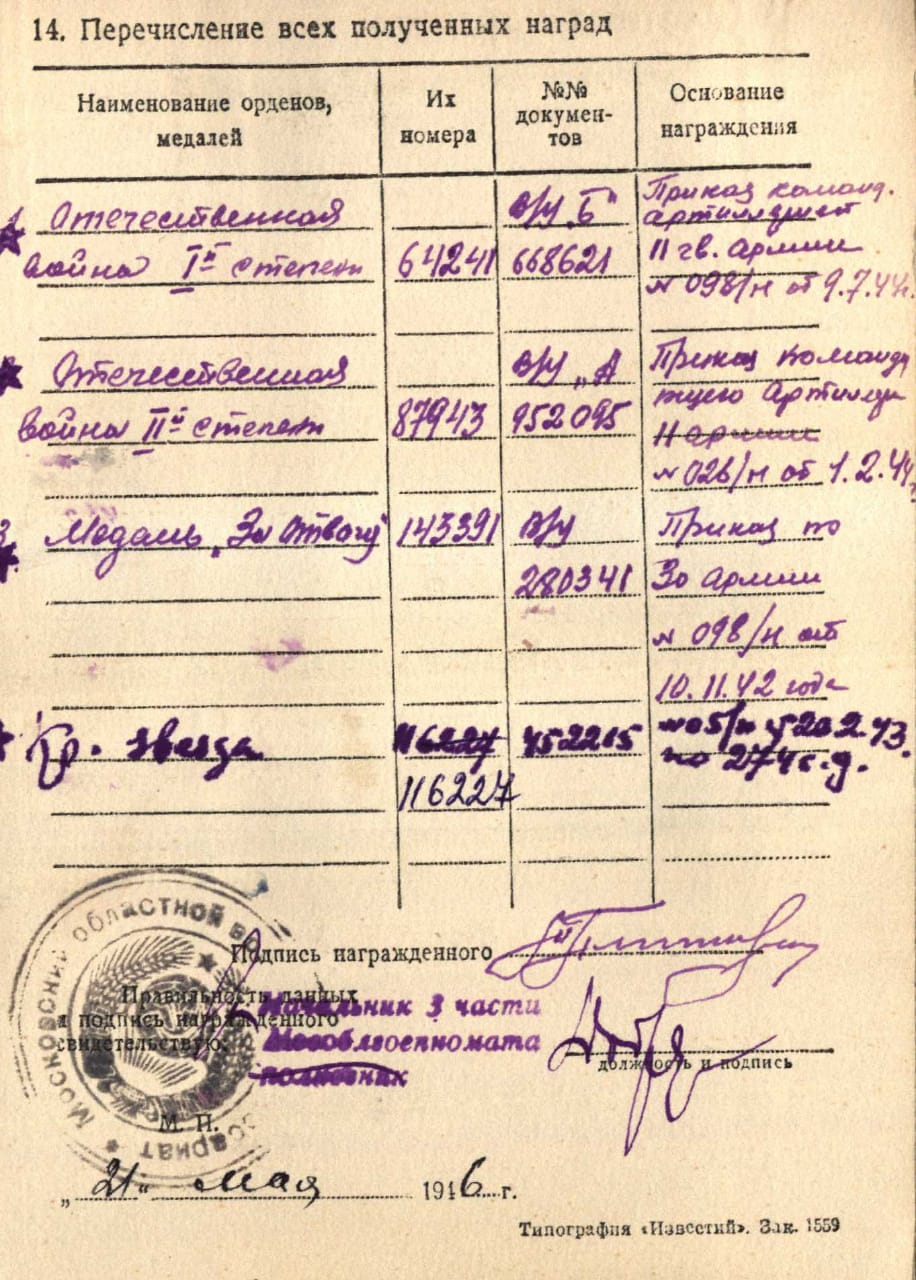 14. Перечисление всех полученных наград
Наименование орденов, медалей
Их номера
№№ докумен-тов
Основание награждения
1 Отечественная
в/у „Б“
Приказ команд.
артиллерией
война Iй степени
64241
668621
11 гв. армии
№ 098/н от 9.7.44г.
Отечественная
в/у „А
Приказ Команду
война IIй степени
87943
952095
ющего Артиллери
11 армии
№ 026/н от 1.2.44
3 Медаль „За Отвагу“
143391
в/у
Приказ по
280341
30 армии
№ 098/н от
10.11.42 года
Кр. звезда
116227
452215
№ 05/н 202.43.
по 274 с.д.
116227
Московский областной военный комиссариат
Подпись награжденного
Правильность данных
и подпись награжденного
свидетельствую:
Начальник 3 части
Мособлвоенкомата
полковник
должность и подпись
М. П.
„21“ мая 1946 г.
Типография «Известий». Зак. 1559